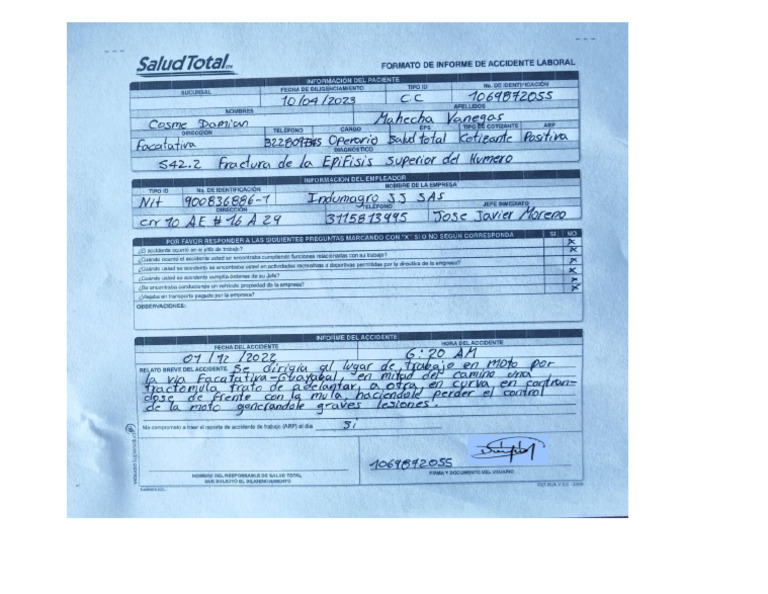 SaludTotal EPS
FORMATO DE INFORME DE ACCIDENTE LABORAL
INFORMACIÓN DEL PACIENTE
SUCURSAL FECHA DE DILIGENCIAMIENTO TIPO ID No. DE IDENTIFICACIÓN
10/04/2023 C.C 1069872055
NOMBRES APELLIDOS
Cosme Damian Mahecha Vanegas
DIRECCIÓN TELÉFONO CARGO EPS TIPO DE COTIZANTE ARP
Facatativa Operario Salud total Cotizante Positiva
DIAGNÓSTICO
S42.2 Fractura de la EPiFisis superior del Humero
INFORMACIÓN DEL EMPLEADOR
TIPO ID No. DE IDENTIFICACIÓN NOMBRE DE LA EMPRESA
Nit 900836886-1 Indumagro JJ SAS
DIRECCIÓN TELÉFONO JEFE INMEDIATO
crr 10 AE # 16 A 29 3115813495 Jose Javier Moreno
POR FAVOR RESPONDER A LAS SIGUIENTES PREGUNTAS MARCANDO CON "X" SI O NO SEGÚN CORRESPONDA SI NO
¿El accidente ocurrió en el sitio de trabajo? X
¿Cuando ocurrió el accidente usted se encontraba cumpliendo funciones relacionadas con su trabajo? X
¿Cuando usted se accidentó se encontraba usted en actividades recreativas o deportivas permitidas por la directiva de la empresa? X
¿Cuando usted se accidentó cumplía órdenes de su Jefe? X
¿Se encontraba conduciendo un vehículo propiedad de la empresa? X
¿Viajaba en transporte pagado por la empresa? X
OBSERVACIONES:
INFORME DEL ACCIDENTE
FECHA DEL ACCIDENTE HORA DEL ACCIDENTE
01/12/2022 6:20 AM
RELATO BREVE DEL ACCIDENTE Se dirigia al lugar de trabajo en moto por
la via Facatativa-Guayabal, en mitad del camino una
tractomula trato de adelantar, a otra, en curva, en contran-
dose de frente con la mula, haciendole perder el control
de la moto generandole graves lesiones.
Me comprometo a traer el reporte de accidente de trabajo (ARP) el día Si
1069872055
NOMBRE DEL RESPONSABLE DE SALUD TOTAL FIRMA Y DOCUMENTO DEL USUARIO
QUE SOLICITÓ EL DILIGENCIAMIENTO